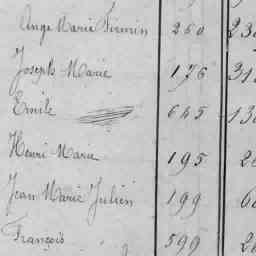 Ange Marie Firmin 260 23
Joseph Marie 176 31
Emile 645 13
Henri Marie 195 2
Jean Marie Julien 199 6
François 599 2